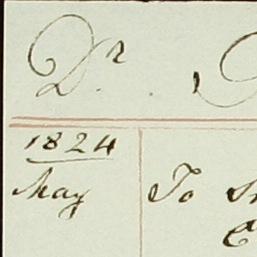 Dr.
1824
May To